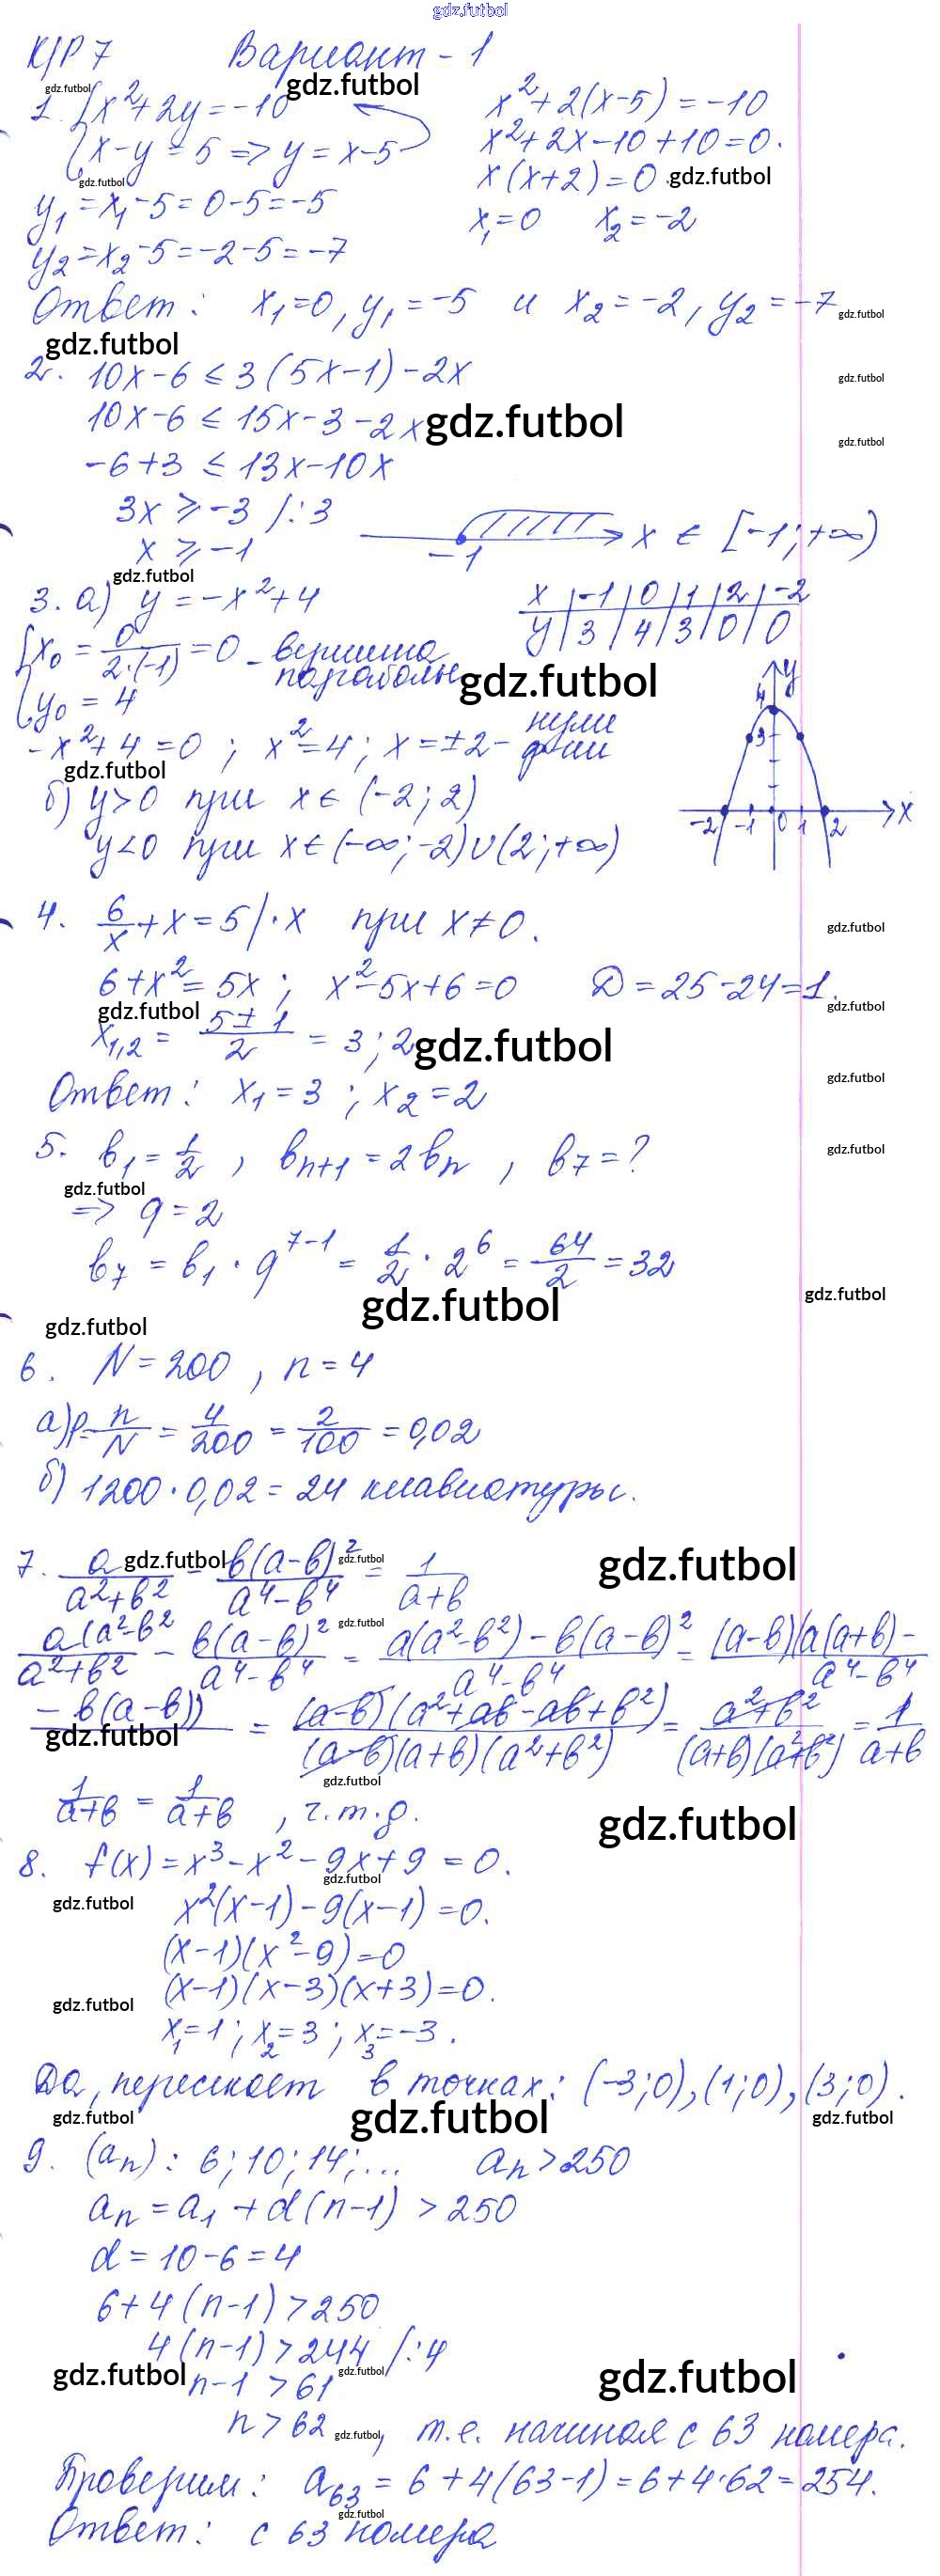 gdz.futbol
К/Р 7 Вариант - 1
gdz.futbol gdz.futbol
1. {x²+2y=-10 x²+2(x-5)=-10
{x-y=5 => y=x-5 x²+2x-10+10=0.
gdz.futbol x(x+2)=0 gdz.futbol
y₁=x₁-5=0-5=-5 x₁=0 x₂=-2
y₂=x₂-5=-2-5=-7
Ответ: x₁=0, y₁=-5 и x₂=-2, y₂=-7 gdz.futbol
gdz.futbol
2. 10x-6 ≤ 3(5x-1)-2x gdz.futbol
10x-6 ≤ 15x-3-2x gdz.futbol gdz.futbol
-6+3 ≤ 13x-10x
3x ≥ -3 /:3
x ≥ -1 -1 x ∈ [-1; +∞)
gdz.futbol
3. а) y=-x²+4 x | -1 | 0 | 1 | 2 | -2
y | 3 | 4 | 3 | 0 | 0
{x₀ = 0/(2·(-1)) = 0 - вершина
параболы gdz.futbol
{y₀ = 4
-x²+4=0; x²=4; x=±2- нули
ф-ии
gdz.futbol
4 y 3 -2 -1 0 1 2 x
б) y>0 при x∈(-2; 2)
y<0 при x∈(-∞; -2)∪(2; +∞)
4. 6/x + x = 5 /·x при x≠0. gdz.futbol
6+x²=5x; x²-5x+6=0 D=25-24=1.
gdz.futbol gdz.futbol
x₁,₂ = (5±1)/2 = 3; 2 gdz.futbol
gdz.futbol
Ответ: x₁=3; x₂=2
5. b₁=1/2, bₙ₊₁=2bₙ, b₇=? gdz.futbol
gdz.futbol
=> q=2
b₇ = b₁·q⁷⁻¹ = 1/2 · 2⁶ = 64/2 = 32
gdz.futbol gdz.futbol
gdz.futbol
6. N=200, n=4
а) p=n/N = 4/200 = 2/100 = 0,02
б) 1200·0,02=24 клавиатуры.
7. a/(a²+b²) - b(a-b)²/(a⁴-b⁴) = 1/(a+b)
gdz.futbol gdz.futbol gdz.futbol
a(a²-b²/(a²+b²) - b(a-b)²/(a⁴-b⁴) = (a(a²-b²)-b(a-b)²)/(a⁴-b⁴) = (a-b)(a(a+b)-/(a⁴-b⁴)
gdz.futbol
-b(a-b)) = (a-b)(a²+ab-ab+b²)/((a-b)(a+b)(a²+b²)) = (a²+b²)/((a+b)(a²+b²)) = 1/(a+b)
gdz.futbol
1/(a+b) = 1/(a+b), ч.т.д.
gdz.futbol gdz.futbol
8. f(x)=x³-x²-9x+9=0.
gdz.futbol
gdz.futbol x²(x-1)-9(x-1)=0.
(x-1)(x²-9)=0
(x-1)(x-3)(x+3)=0.
gdz.futbol
x₁=1; x₂=3; x₃=-3.
Да, пересекает в точках: (-3;0), (1;0), (3;0).
gdz.futbol gdz.futbol gdz.futbol
9. (aₙ): 6; 10; 14; ... aₙ>250
aₙ=a₁+d(n-1)>250
d=10-6=4
6+4(n-1)>250
4(n-1)>244 /:4
gdz.futbol gdz.futbol gdz.futbol
n-1>61
n>62, т.е. начиная с 63 номера.
gdz.futbol
Проверим: a₆₃=6+4(63-1)=6+4·62=254.
gdz.futbol
Ответ: с 63 номера